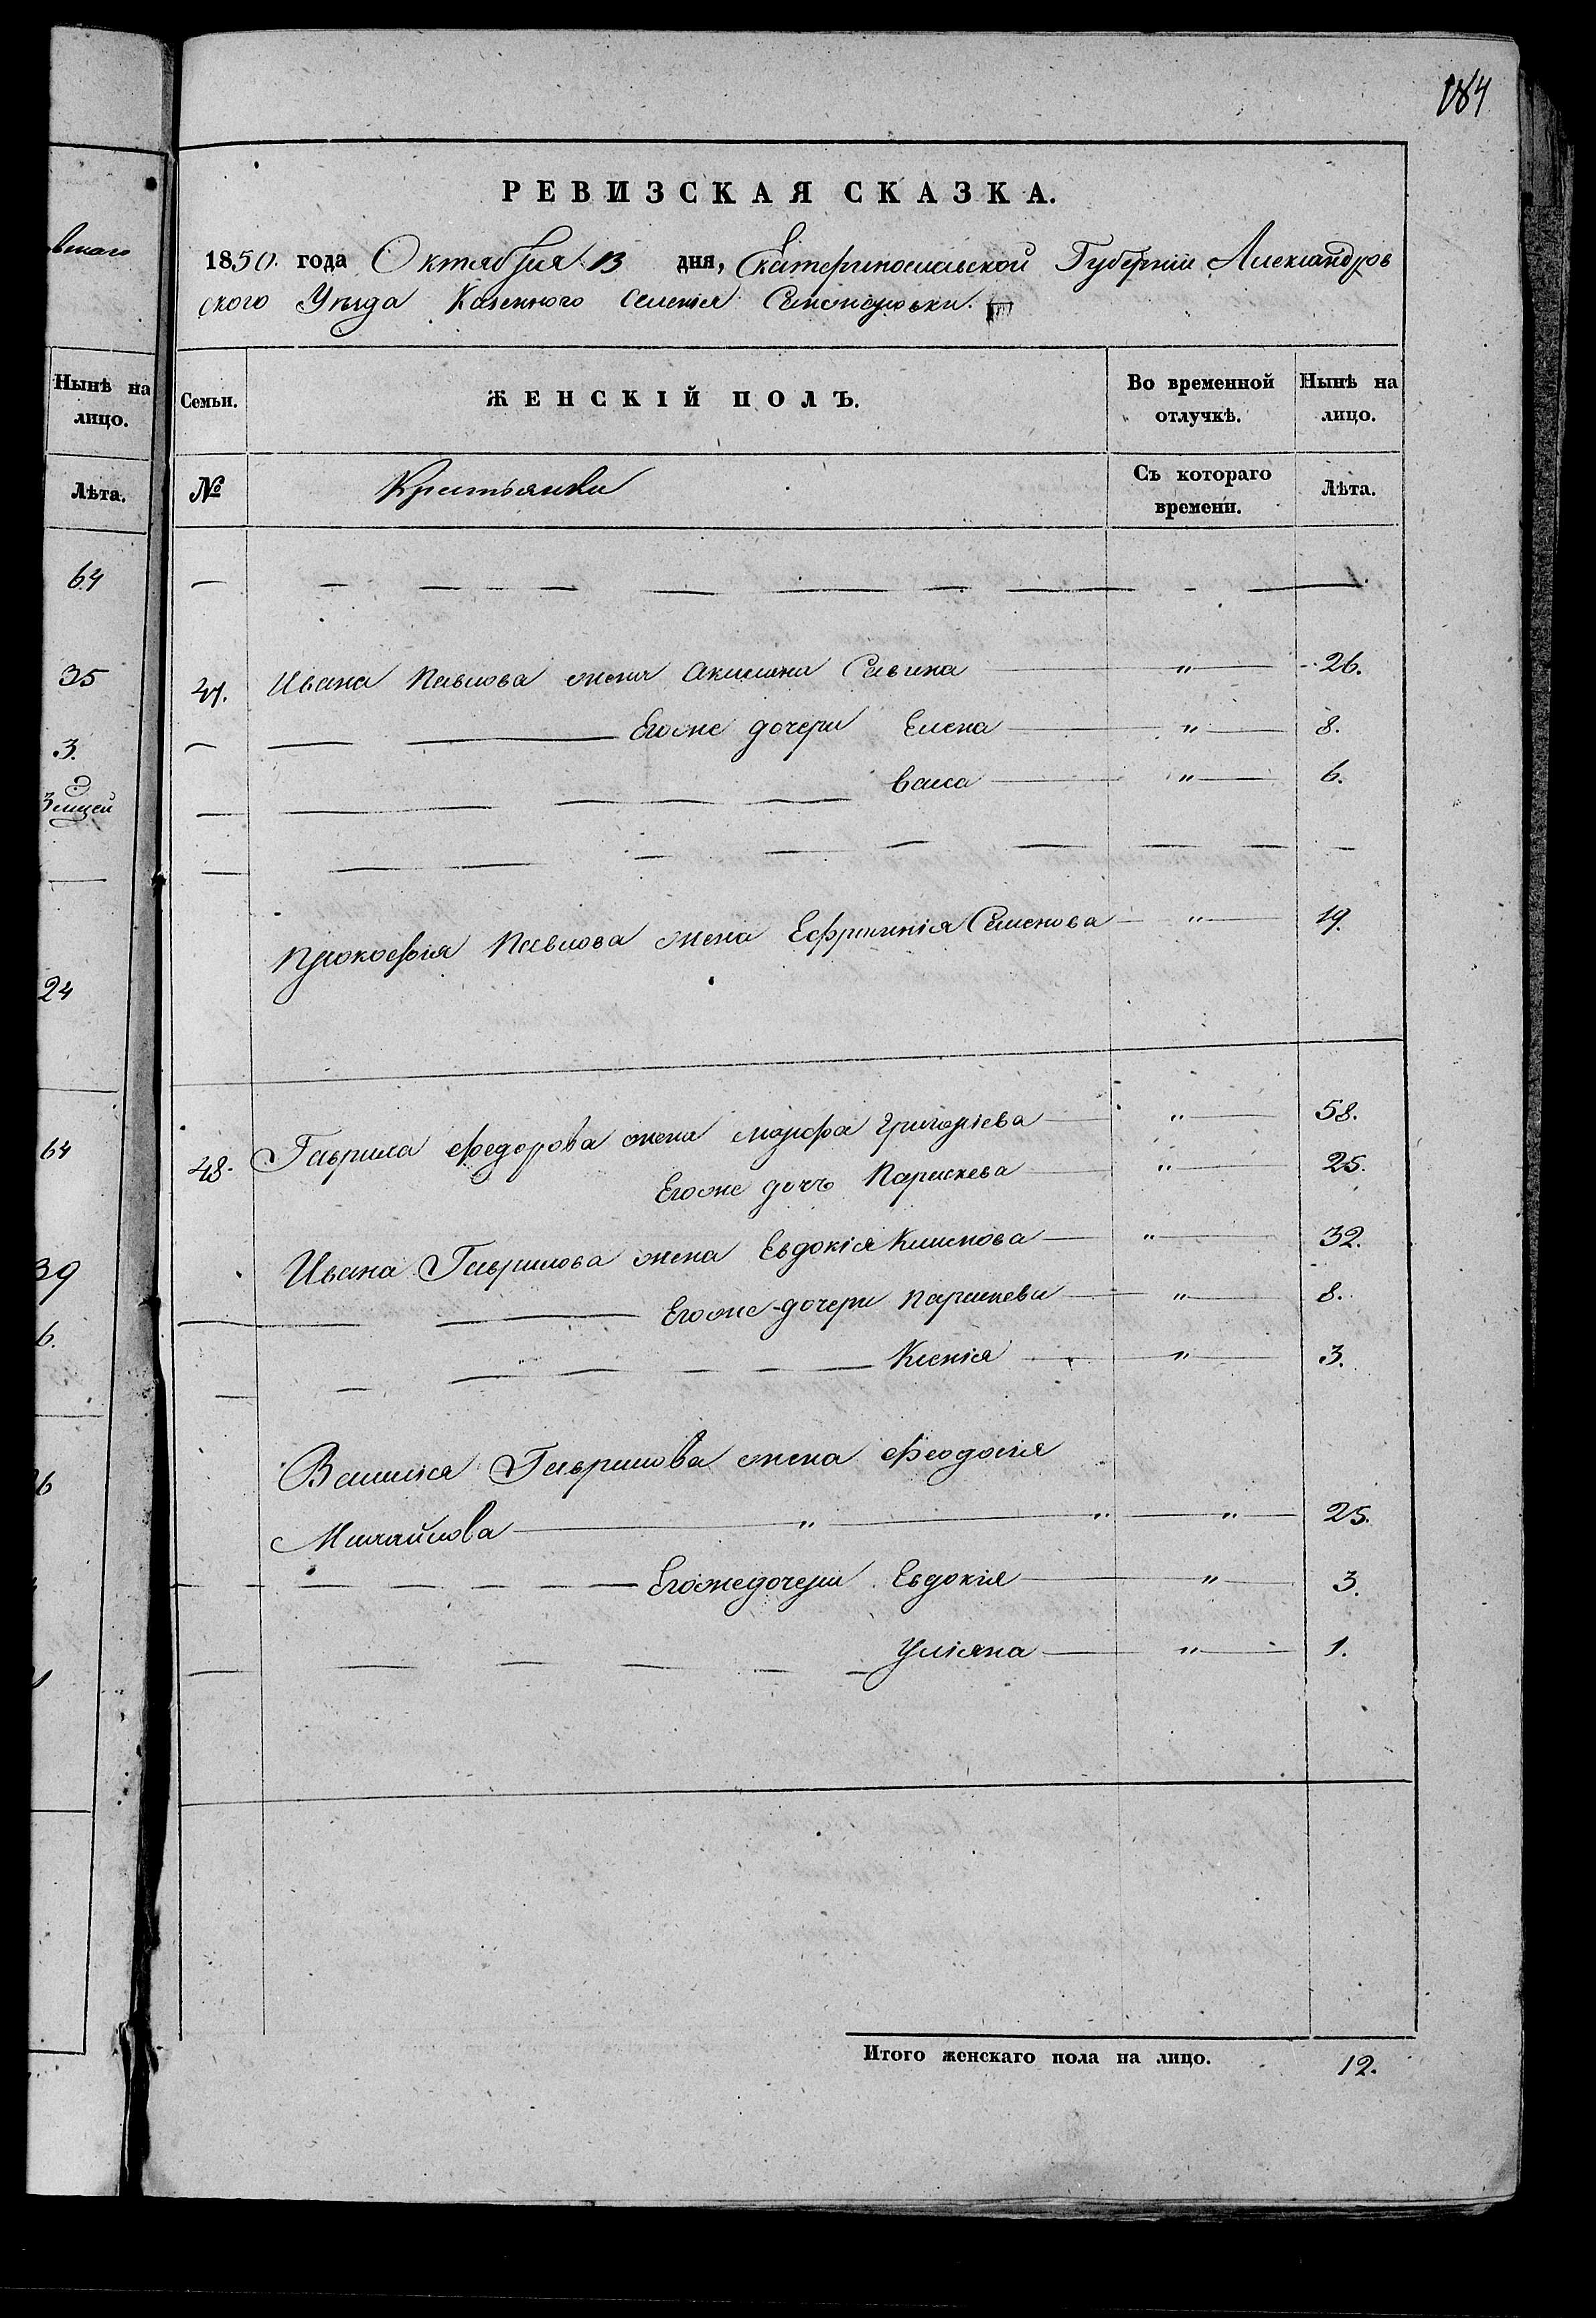 184
РЕВИЗСКАЯ СКАЗКА.
1850. года Октября 13 дня, Екатеринославской Губернии Александров
ского Уезда Казенного Селенія
Семьи. ЖЕНСКІЙ ПОЛЪ. Во временной отлучкѣ. Нынѣ на лицо.
№ Крестьянки Съ котораго времени. Лѣта.
47. Ивана Павлова жена Акилина Савина " 26.
Егоже дочери Елена " 8.
Васса " 6.
Прокофія Павлова жена Ефросинія Семенова " 19.
48. Гаврила Федорова жена Марфа Григоріева " 58.
Егоже дочь Параскева " 25.
Ивана Гаврилова жена Евдокія Климова " 32.
Егоже дочери Параскева " 8.
Ксенія " 3.
Василія Гаврилова жена Феодосія
Михайлова " " " 25.
Егоже дочери Евдокія " 3.
Уліяна " 1.
Итого женскаго пола на лицо. 12.
Нынѣ на
лицо.
Лѣта.
64
35
3.
24
64
39
6.